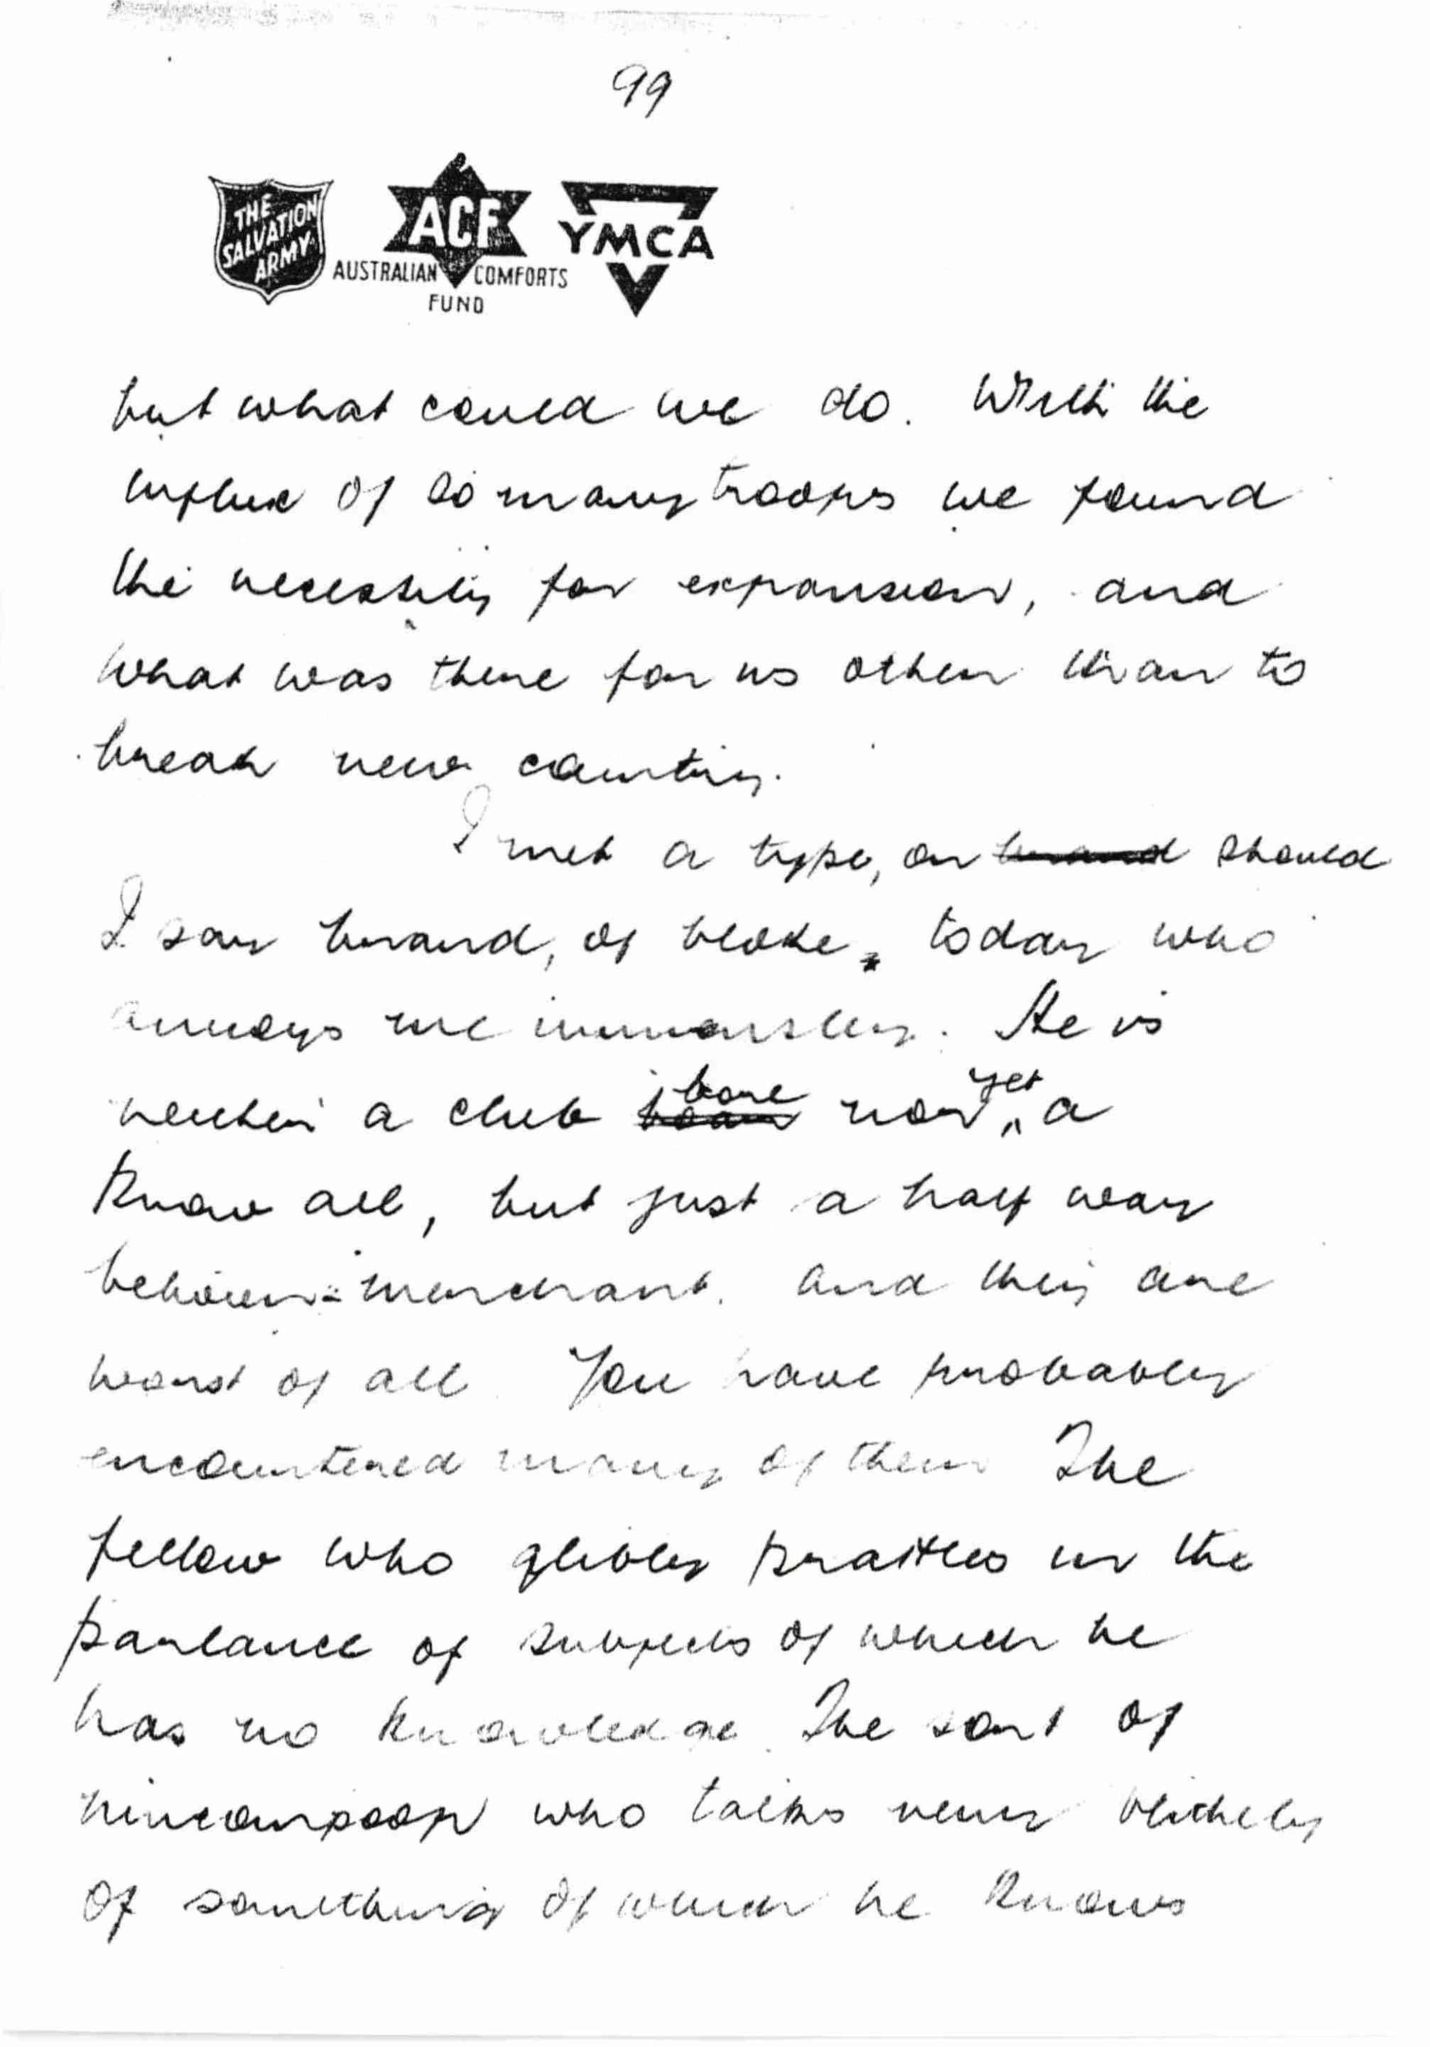 99
THE
SALVATION
ARMY
ACF
AUSTRALIAN COMFORTS
FUND
YMCA
but what could we do. With the
influx of so many troops we found
the necessity for expansion, and
what was there for us other than to
break new country.
I met a type, or brand should
I say brand, of bloke, today who
annoys me immensely. He is
neither a club bore nor yet a
know all, but just a half way
between-merchant. and they are
worst of all. You have probably
encountered many of them The
fellow who glibly prattles in the
parlance of subjects of which he
has no knowledge. The sort of
nincompoop who talks very blithely
of something of which he knows